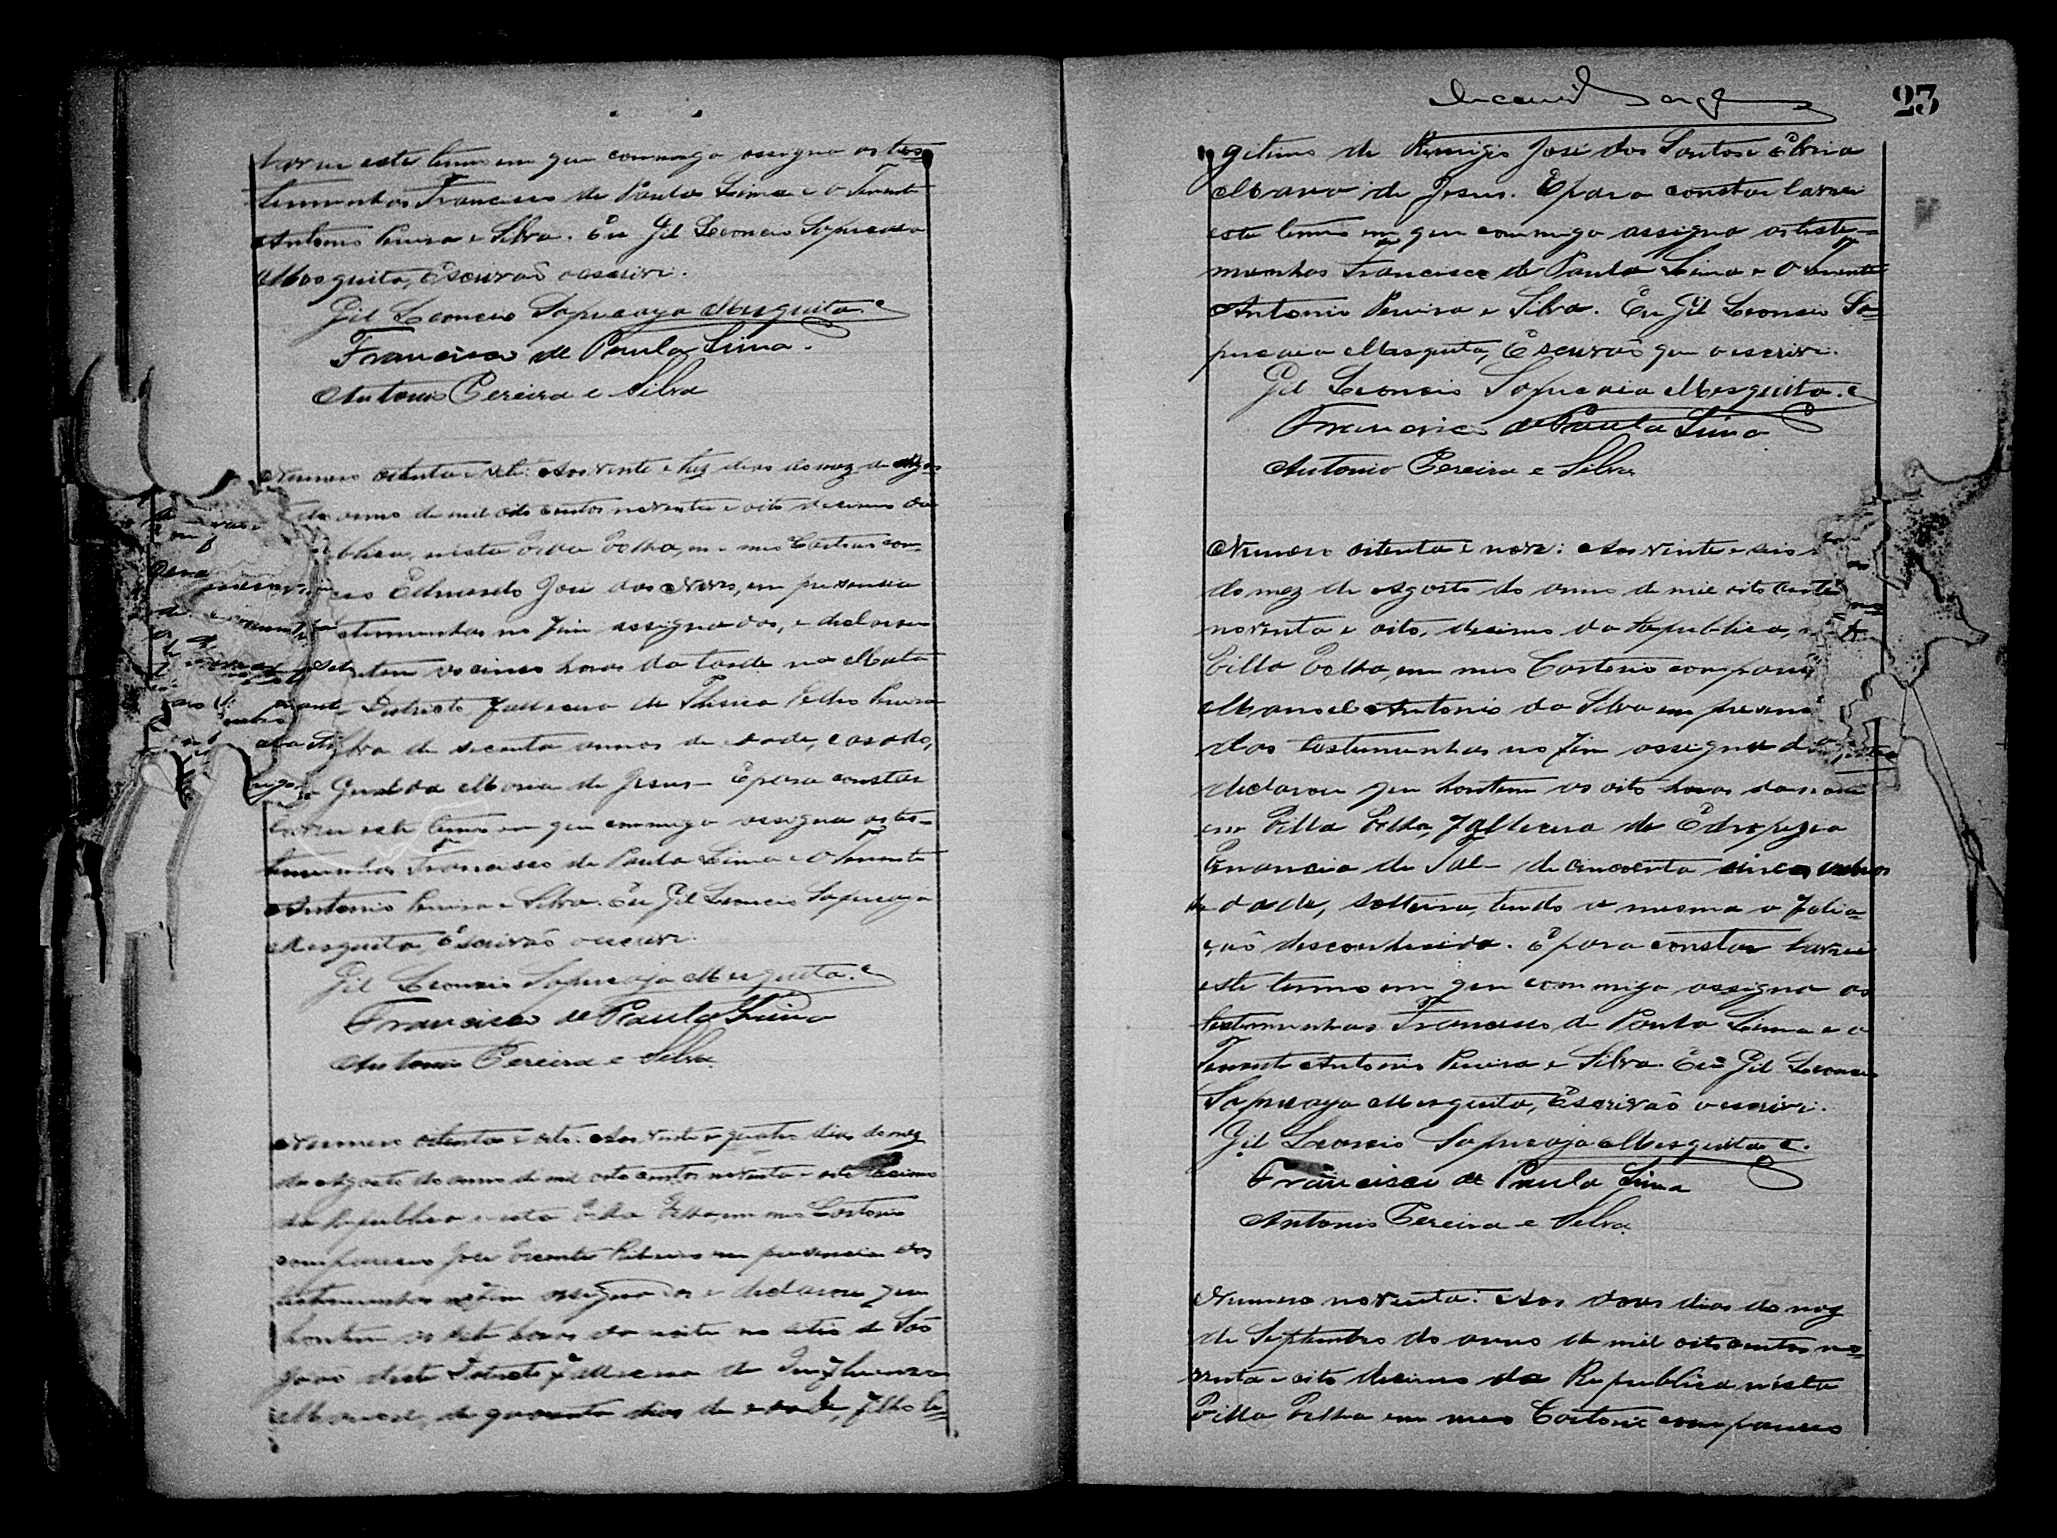 lavrei este termo em que commigo assigna as tes-
temunhas Francisco de Paula Lima e o Tenente
Antonio Pereira e Silva. Eu Gil Leoncio Sapucaia
Mesquita, Escrivaõ o escrivi.
Gil Leoncio Sapucaya Mesquita.
Francisco de Paula Lima.
Antonio Pereira e Silva
Numero oitenta e sete: Aos vinte e trez dias do mez de Agos
to do anno de mil oito centos noventa e oito decimo da
blica, nesta Villa Velha, em meu Cartorio com-
Eduardo José das Neves, em presença
stemunhas no fim assignadas, e declarou
hontem as cinco horas da tarde na Matta
Districto falleceu de Pedro Pereira
da Silva de secenta annos de edade, casado,
Maria de Jesus - E para constar
lavrei este termo em que commigo assigna as tes-
temunhas Francisco de Paula Lima e o Tenente
Antonio Pereira e Silva. Eu Gil Leoncio Sapucaya
Mesquita, Escrivaõ o escrivi.
Gil Leoncio Sapucaya Mesquita.
Francisco de Paula Lima
Antonio Pereira e Silva.
Numero oitenta e oito: Aos vinte e quatro dias do mez
de Agosto do anno de mil oito centos noventa e oito decimo
da Republica nesta Villa Velha em meu Cartorio
compareceu José Vicente Ribeiro em presencia das
testemunhas no fim assignadas e declarou que
hontem as sete horas da noite no sitio de Saõ
Joaõ deste Districto falleceu de Influenza
Manoel, de quarenta dias de edade, filho le-
23
gitimo de Remigio José dos Santos e
Maria de Jesus. E para constar lavrei
este termo em que commigo assigna as teste-
munhas Francisco de Paula Lima e o Tenente
Antonio Pereira e Silva. Eu Gil Leoncio Sa-
pucaia Mesquita, Escrivaõ que o escrivi.
Gil Leoncio Sapucaia Mesquita.
Francisco de Paula Lima
Antonio Pereira e Silva
Numero oitenta e nove: Aos vinte e seis
do mez de Agosto do anno de mil oito cento
noventa e oito, decimo da Republica,
Villa Velha, em meu Cartorio compare
Manoel Antonio da Silva em presen
das testemunhas no fim assignad
declarou que hontem as oito horas da noite
em Villa Velha, falleceu de Edropezia
Venancia de Tal - de cincoenta cinco annos
de edade, solteira, tendo a mesma a filia-
çaõ desconhecida. E para constar lavrei
este termo em que commigo assigna as
testemunhas Francisco de Paula Lima e o
Tenente Antonio Pereira e Silva. Eu Gil Leoncio
Sapucaya Mesquita, Escrivaõ o escrivi.
Gil Leoncio Sapucaya Mesquita.
Francisco de Paula Lima
Antonio Pereira e Silva.
Numero noventa: Aos dous dias do mez
de Septembro do anno de mil oito centos no-
venta e oito decimo da Republica nesta
Villa Velha em meu Cartorio compareceu